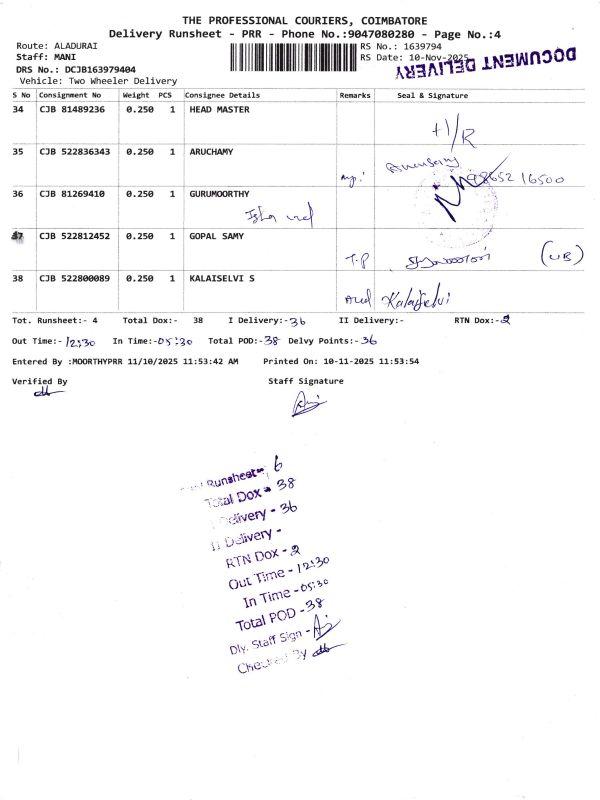 THE PROFESSIONAL COURIERS, COIMBATORE
Delivery Runsheet - PRR - Phone No.:9047080280 - Page No.:4
Route: ALADURAI
RS No.: 1639794
Staff: MANI
RS Date: 10-Nov-2025
DOCUMENT DELIVERY
DRS No.: DCJB163979404
Vehicle: Two Wheeler Delivery
S No Consignment No Weight PCS Consignee Details Remarks Seal & Signature
34 CJB 81489236 0.250 1 HEAD MASTER
H/R
35 CJB 522836343 0.250 1 ARUCHAMY
98652 16500
36 CJB 81269410 0.250 1 GURUMOORTHY
37 CJB 522812452 0.250 1 GOPAL SAMY
T.P (UB)
38 CJB 522800089 0.250 1 KALAISELVI S
Kalaiselvi
Tot. Runsheet:- 4 Total Dox:- 38 I Delivery:-36 II Delivery:- RTN Dox:-2
Out Time:-12:30 In Time:-05:30 Total POD:-38 Delvy Points:-36
Entered By :MOORTHYPRR 11/10/2025 11:53:42 AM Printed On: 10-11-2025 11:53:54
Verified By Staff Signature
Runsheet- 6
Total Dox - 38
I Delivery - 36
II Delivery -
RTN Dox - 2
Out Time - 12:30
In Time - 05:30
Total POD - 38
Dly. Staff Sign -
Checked By